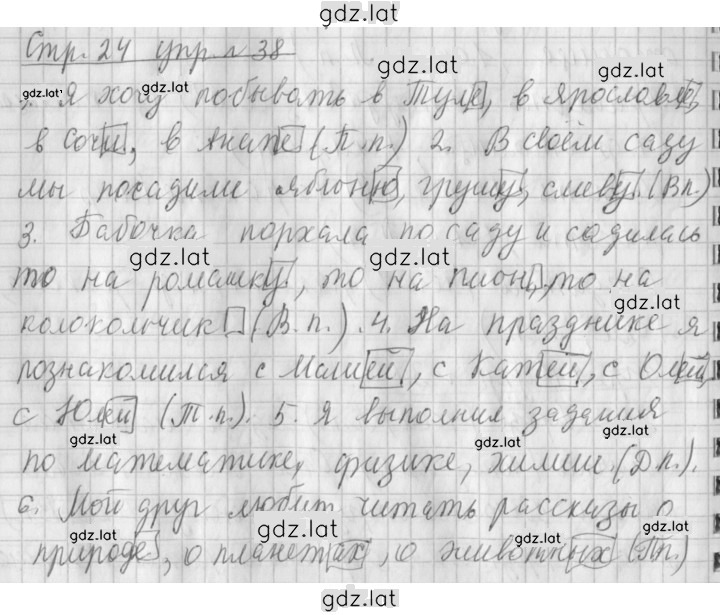 gdz.lat
Стр. 24 упр. № 38
gdz.lat gdz.lat
gdz.lat gdz.lat
1. Я хочу побывать в Туле, в Ярославле,
в Сочи, в Анапе (П.п.) 2. В своём саду
мы посадили яблоню, грушу, сливу. (Вп.)
3. Бабочка порхала по саду и садилась
gdz.lat gdz.lat
то на ромашку, то на пион, то на
gdz.lat
колокольчик (В.п.). 4. На празднике я
познакомился с Машей, с Катей, с Олей,
с Юлей (Т.п.). 5. Я выполнил задания
gdz.lat gdz.lat gdz.lat
по математике, физике, химии. (Дп.).
6. Мой друг любит читать рассказы о
gdz.lat gdz.lat gdz.lat gdz.lat
природе, о планетах, о животных (Пп.)
gdz.lat